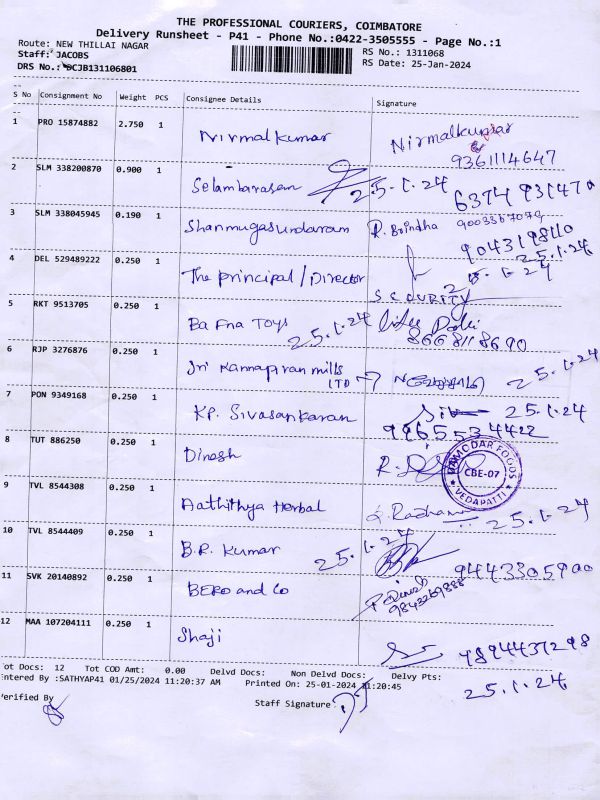 THE PROFESSIONAL COURIERS, COIMBATORE
Delivery Runsheet - P41 - Phone No.:0422-3505555 - Page No.:1
Route: NEW THILLAI NAGAR
RS No.: 1311068
Staff: JACOBS
RS Date: 25-Jan-2024
DRS No.: DCJB131106801
S No Consignment No Weight PCS Consignee Details Signature
1 PRO 15874882 2.750 1 Nirmalkumar Nirmalkumar
9361114647
2 SLM 338200870 0.900 1 Selambarasan 25.1.24 6374931470
3 SLM 338045945 0.190 1 Shanmugasundaram R. Brindha 9003367074
9043198110
25.1.24
4 DEL 529489222 0.250 1 The principal / Director 25.1.24
SECURITY
5 RKT 9513705 0.250 1 Bafna Toys 25.1.24
8668118690
6 RJP 3276876 0.250 1 Sri Kannapiran mills
LTD 25.1.24
7 PON 9349168 0.250 1 KP. Sivasankaran 25.1.24
9965534422
8 TUT 886250 0.250 1 Dinesh
DAMODAR FOODS
CBE-07
VEDAPATTI
9 TVL 8544308 0.250 1 Aathithya Herbal 25.1.24
10 TVL 8544409 0.250 1 B.R. Kumar 25.1.24
9443305900
11 SVK 20140892 0.250 1 BERO and Co
9843269888
12 MAA 107204111 0.250 1 Shaji 9894437298
25.1.24
Tot Docs: 12 Tot COD Amt: 0.00 Delvd Docs: Non Delvd Docs: Delvy Pts:
Entered By :SATHYAP41 01/25/2024 11:20:37 AM Printed On: 25-01-2024 11:20:45
Verified By
Staff Signature: